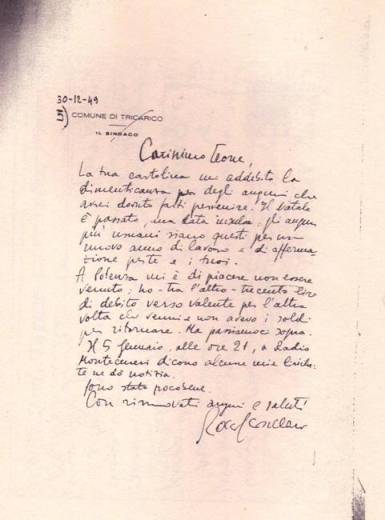 30-12-49
COMUNE DI TRICARICO
IL SINDACO
Carissimo Leone,
La tua cartolina mi addebita la
dimenticanza per degli auguri che
avrei dovuto farti pervenire. Il Natale
è passato, una data inutile. Gli auguri
più umani siano questi per un
nuovo anno di lavoro e di afferma-
zione per te e i tuoi.
A Potenza mi è di piacere non essere
venuto: ho tra l'altro trecento lire
di debito verso Valente per l'altra
volta che venni e non avevo i soldi
per ritornare. Ma passiamoci sopra.
Il 5 Gennaio, alle ore 21, a Radio
Monteceneri dicono alcune mie liriche.
te ne do notizia.
Sono stato poco bene.
Con rinnovati auguri e saluti